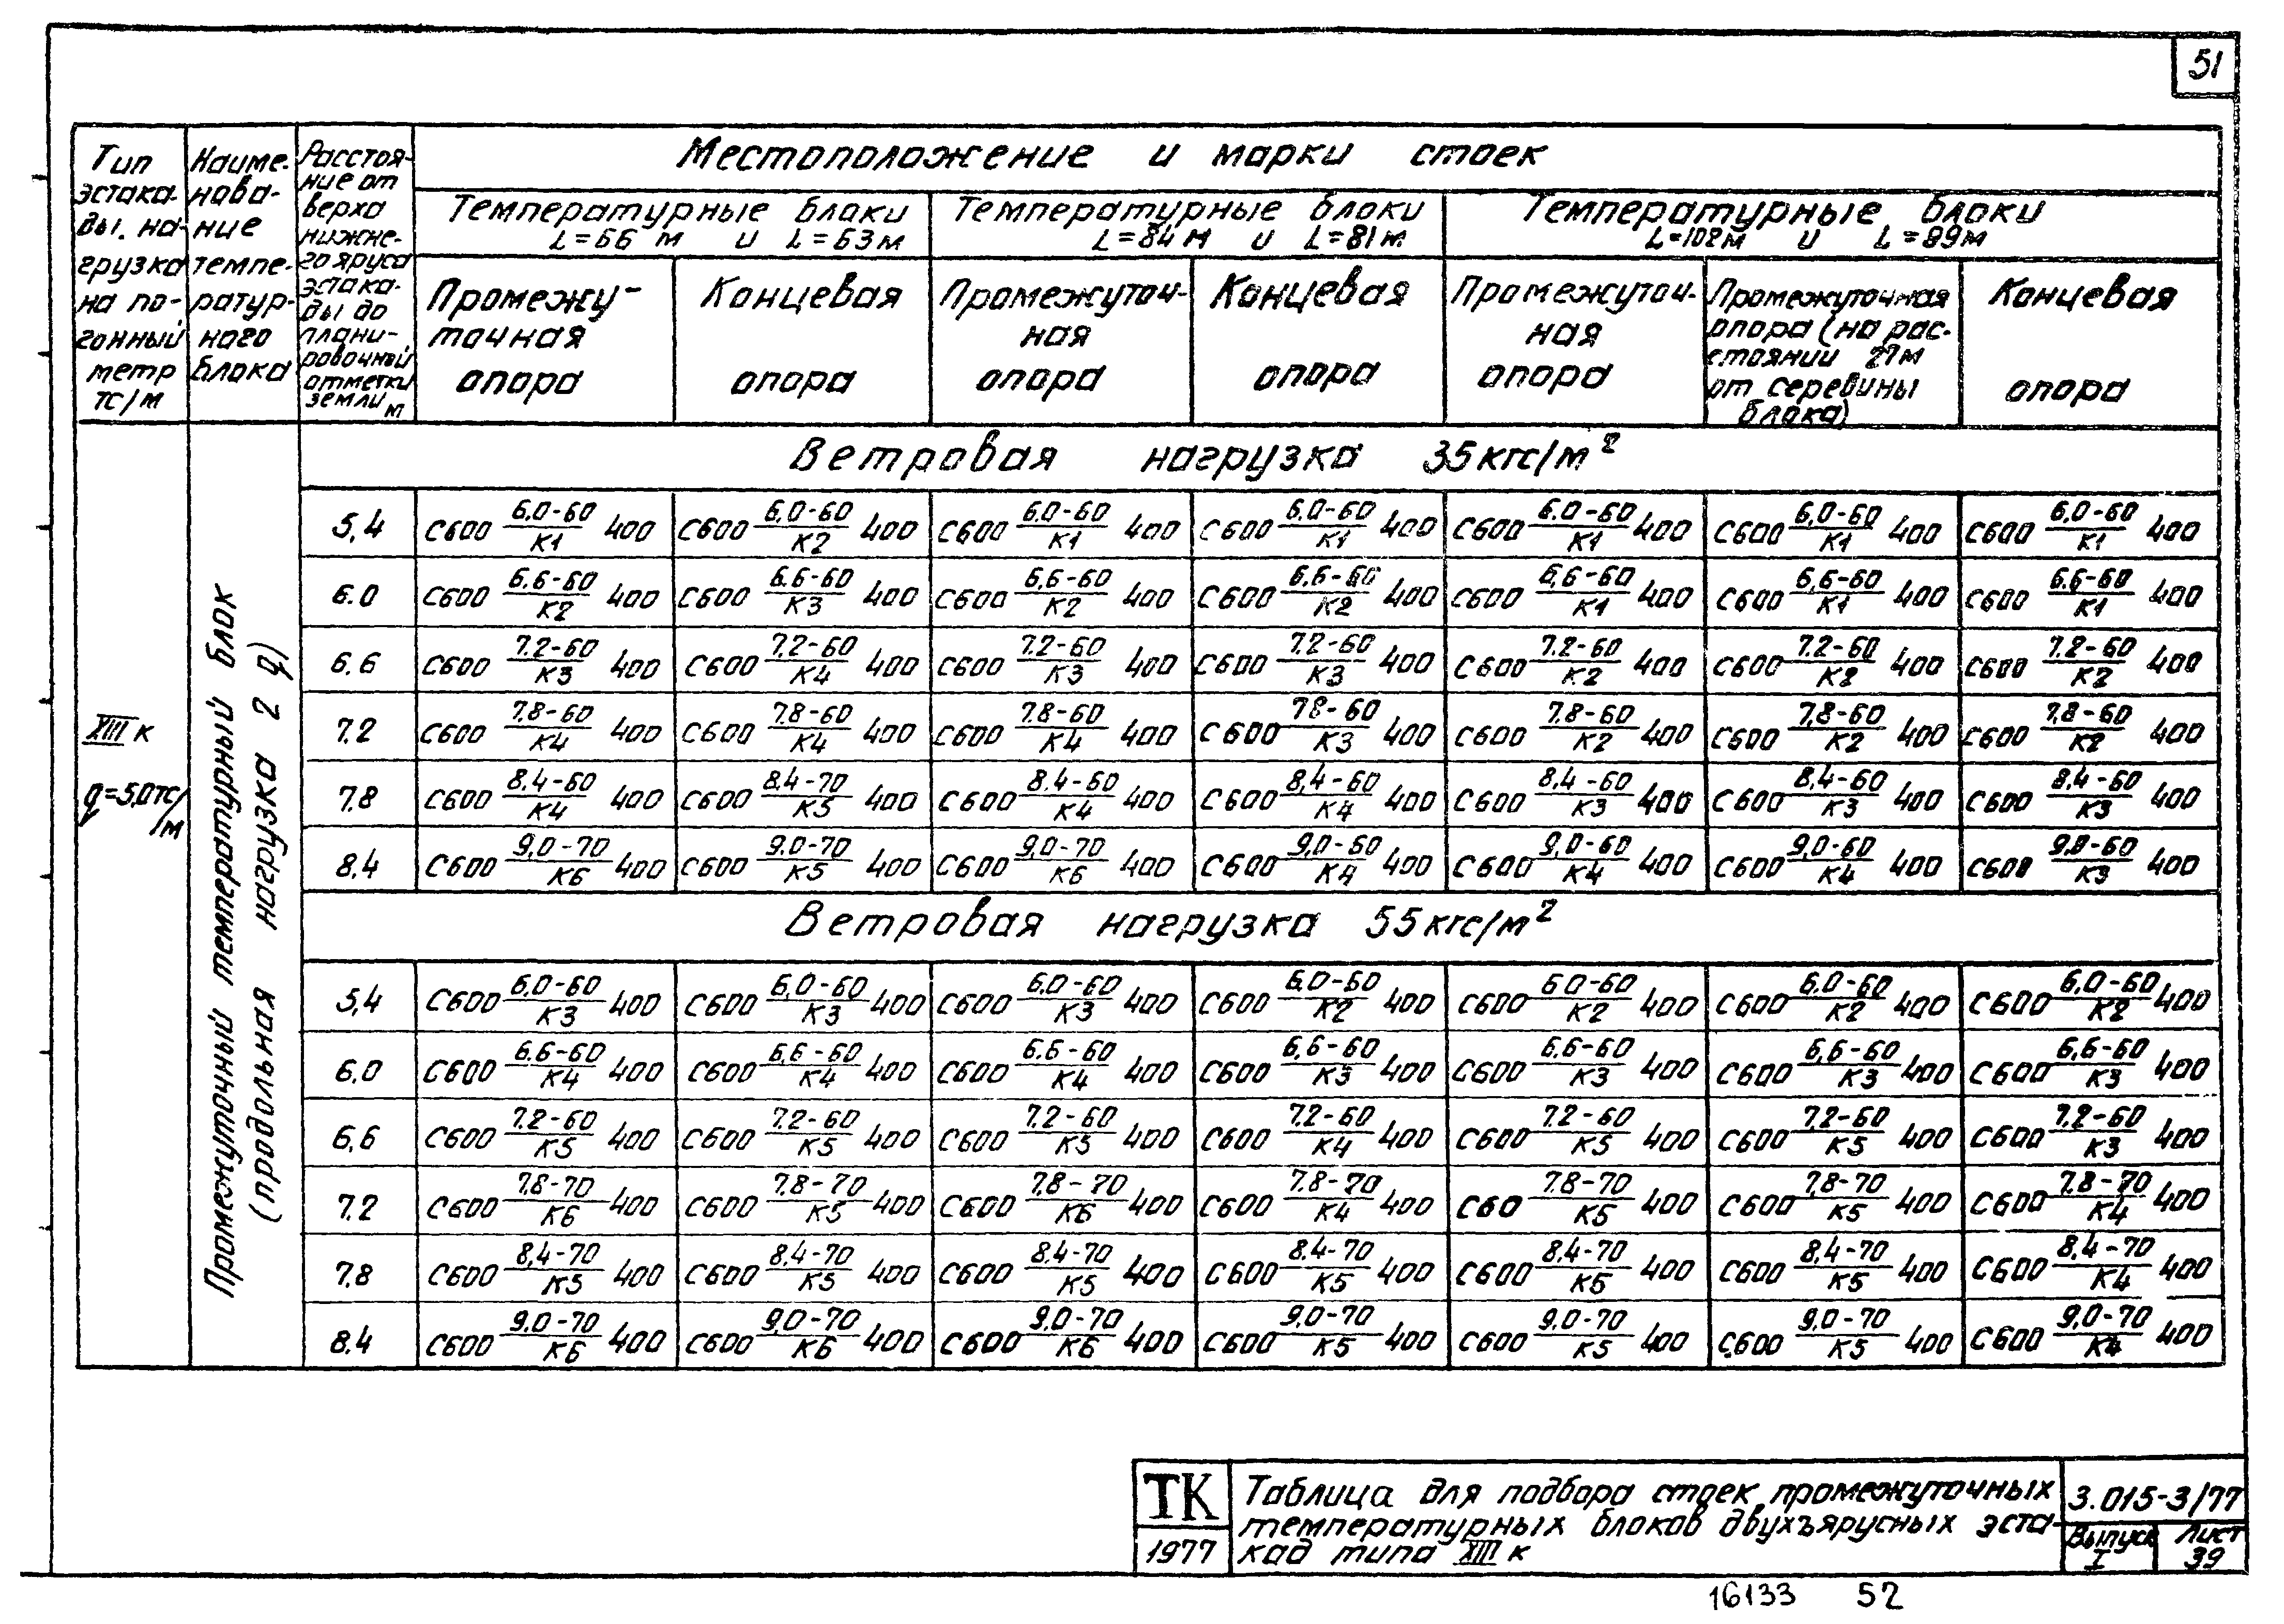 51
Тип эстака-ды, на-грузка на по-гонный метр тс/м
Наиме-нова-ние темпе-ратур-ного блока
Расстоя-ние от верха нижне-го яруса эстака-ды до плани-ровочной отметки земли м
Местоположение и марки стоек
Температурные блоки L=66 м и L=63м
Температурные блоки L=84м и L=81м
Температурные блоки L=102м и L=89м
Промежу-точная опора
Концевая опора
Промежуточ-ная опора
Концевая опора
Промежуточ-ная опора
Промежуточная опора (на рас-стоянии 27м от середины блока)
Концевая опора
XIII к
q=5,0тс/м
Промежуточный температурный блок
(продольная нагрузка 2 q)
Ветровая нагрузка 35кгс/м²
5,4 С600 6,0-60/К1 400 С600 6,0-60/К2 400 С600 6,0-60/К1 400 С600 6,0-60/К1 400 С600 6.0-60/К1 400 С600 6,0-60/К1 400 С600 6,0-60/К1 400
6.0 С600 6.6-60/К2 400 С600 6,6-60/К3 400 С600 6,6-60/К2 400 С600 6.6-60/К2 400 С600 6,6-60/К1 400 С600 6,6-60/К1 400 С600 6.6-60/К1 400
6.6 С600 7.2-60/К3 400 С600 7,2-60/К4 400 С600 7.2-60/К3 400 С600 7.2-60/К3 400 С600 7.2-60/К2 400 С600 7.2-60/К2 400 С600 7.2-60/К2 400
7.2 С600 7.8-60/К4 400 С600 7.8-60/К4 400 С600 7.8-60/К4 400 С600 78-60/К3 400 С600 7.8-60/К2 400 С600 7,8-60/К2 400 С600 7.8-60/К2 400
7.8 С600 8.4-60/К4 400 С600 8.4-70/К5 400 С600 8.4-60/К4 400 С600 8,4-60/К4 400 С600 8,4-60/К3 400 С600 8,4-60/К3 400 С600 8,4-60/К3 400
8.4 С600 9,0-70/К6 400 С600 9.0-70/К5 400 С600 9,0-70/К6 400 С600 9,0-60/К4 400 С600 9,0-60/К4 400 С600 9,0-60/К4 400 С600 9.0-60/К3 400
Ветровая нагрузка 55кгс/м²
5,4 С600 6,0-60/К3 400 С600 6,0-60/К3 400 С600 6.0-60/К3 400 С600 6,0-60/К2 400 С600 60-60/К2 400 С600 6,0-60/К2 400 С600 6,0-60/К2 400
6,0 С600 6.6-60/К4 400 С600 6,6-60/К4 400 С600 6.6-60/К4 400 С600 6,6-60/К3 400 С600 6,6-60/К3 400 С600 6,6-60/К3 400 С600 6,6-60/К3 400
6,6 С600 7.2-60/К5 400 С600 7.2-60/К5 400 С600 7.2-60/К5 400 С600 7.2-60/К4 400 С600 7.2-60/К5 400 С600 7.2-60/К5 400 С600 7.2-60/К3 400
7.2 С600 7.8-70/К6 400 С600 7.8-70/К5 400 С600 7.8-70/К6 400 С600 7.8-70/К4 400 С60 7.8-70/К5 400 С600 7,8-70/К5 400 С600 7.8-70/К4 400
7.8 С600 8,4-70/К5 400 С600 8,4-70/К5 400 С600 8.4-70/К5 400 С600 8.4-70/К5 400 С600 8,4-70/К5 400 С600 8,4-70/К5 400 С600 8,4-70/К4 400
8.4 С600 9.0-70/К6 400 С600 9,0-70/К6 400 С600 9.0-70/К6 400 С600 9,0-70/К5 400 С600 9.0-70/К5 400 С600 9,0-70/К5 400 С600 9,0-70/К4 400
ТК
1977
Таблица для подбора стоек промежуточных
температурных блоков двухъярусных эста-
кад типа XIII к
3.015-3/77
Выпуск I
Лист 39
16133 52